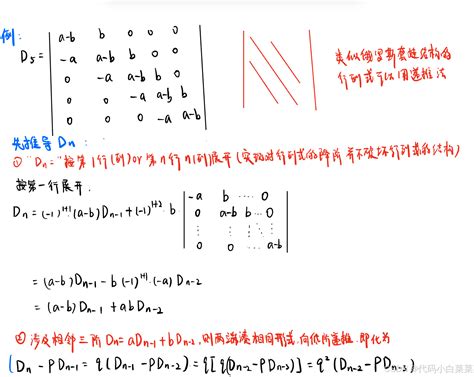 例:
D₅ = | a-b b 0 0 0 |
| -a a-b b 0 0 |
| 0 -a a-b b 0 |
| 0 0 -a a-b b |
| 0 0 0 -a a-b |
类似俄罗斯套娃结构的
行列式可以用递推法
先推导 Dn:
① "Dn=" 按第1行(列) or 第n行n(列)展开 (实现对行列式的降阶 并不破坏行列式的结构)
按第一行展开:
Dn = (-1)¹⁺¹(a-b)Dn-1 + (-1)¹⁺²·b | -a b ⋯ 0 |
| 0 a-b b ⋯ 0 |
| ⋮ ⋮ ⋮ |
| 0 ⋯ a-b |
= (a-b)Dn-1 - b(-1)¹⁺¹·(-a)Dn-2
= (a-b)Dn-1 + abDn-2
② 涉及相邻三阶 Dn=aDn-1+bDn-2, 则两端凑相同形式, 向低阶递推. 即化为
(Dn - PDn-1 = q(Dn-1 - PDn-2) = q[q(Dn-2 - PDn-3)] = q²(Dn-2 - PDn-3)
@代码小白菜菜